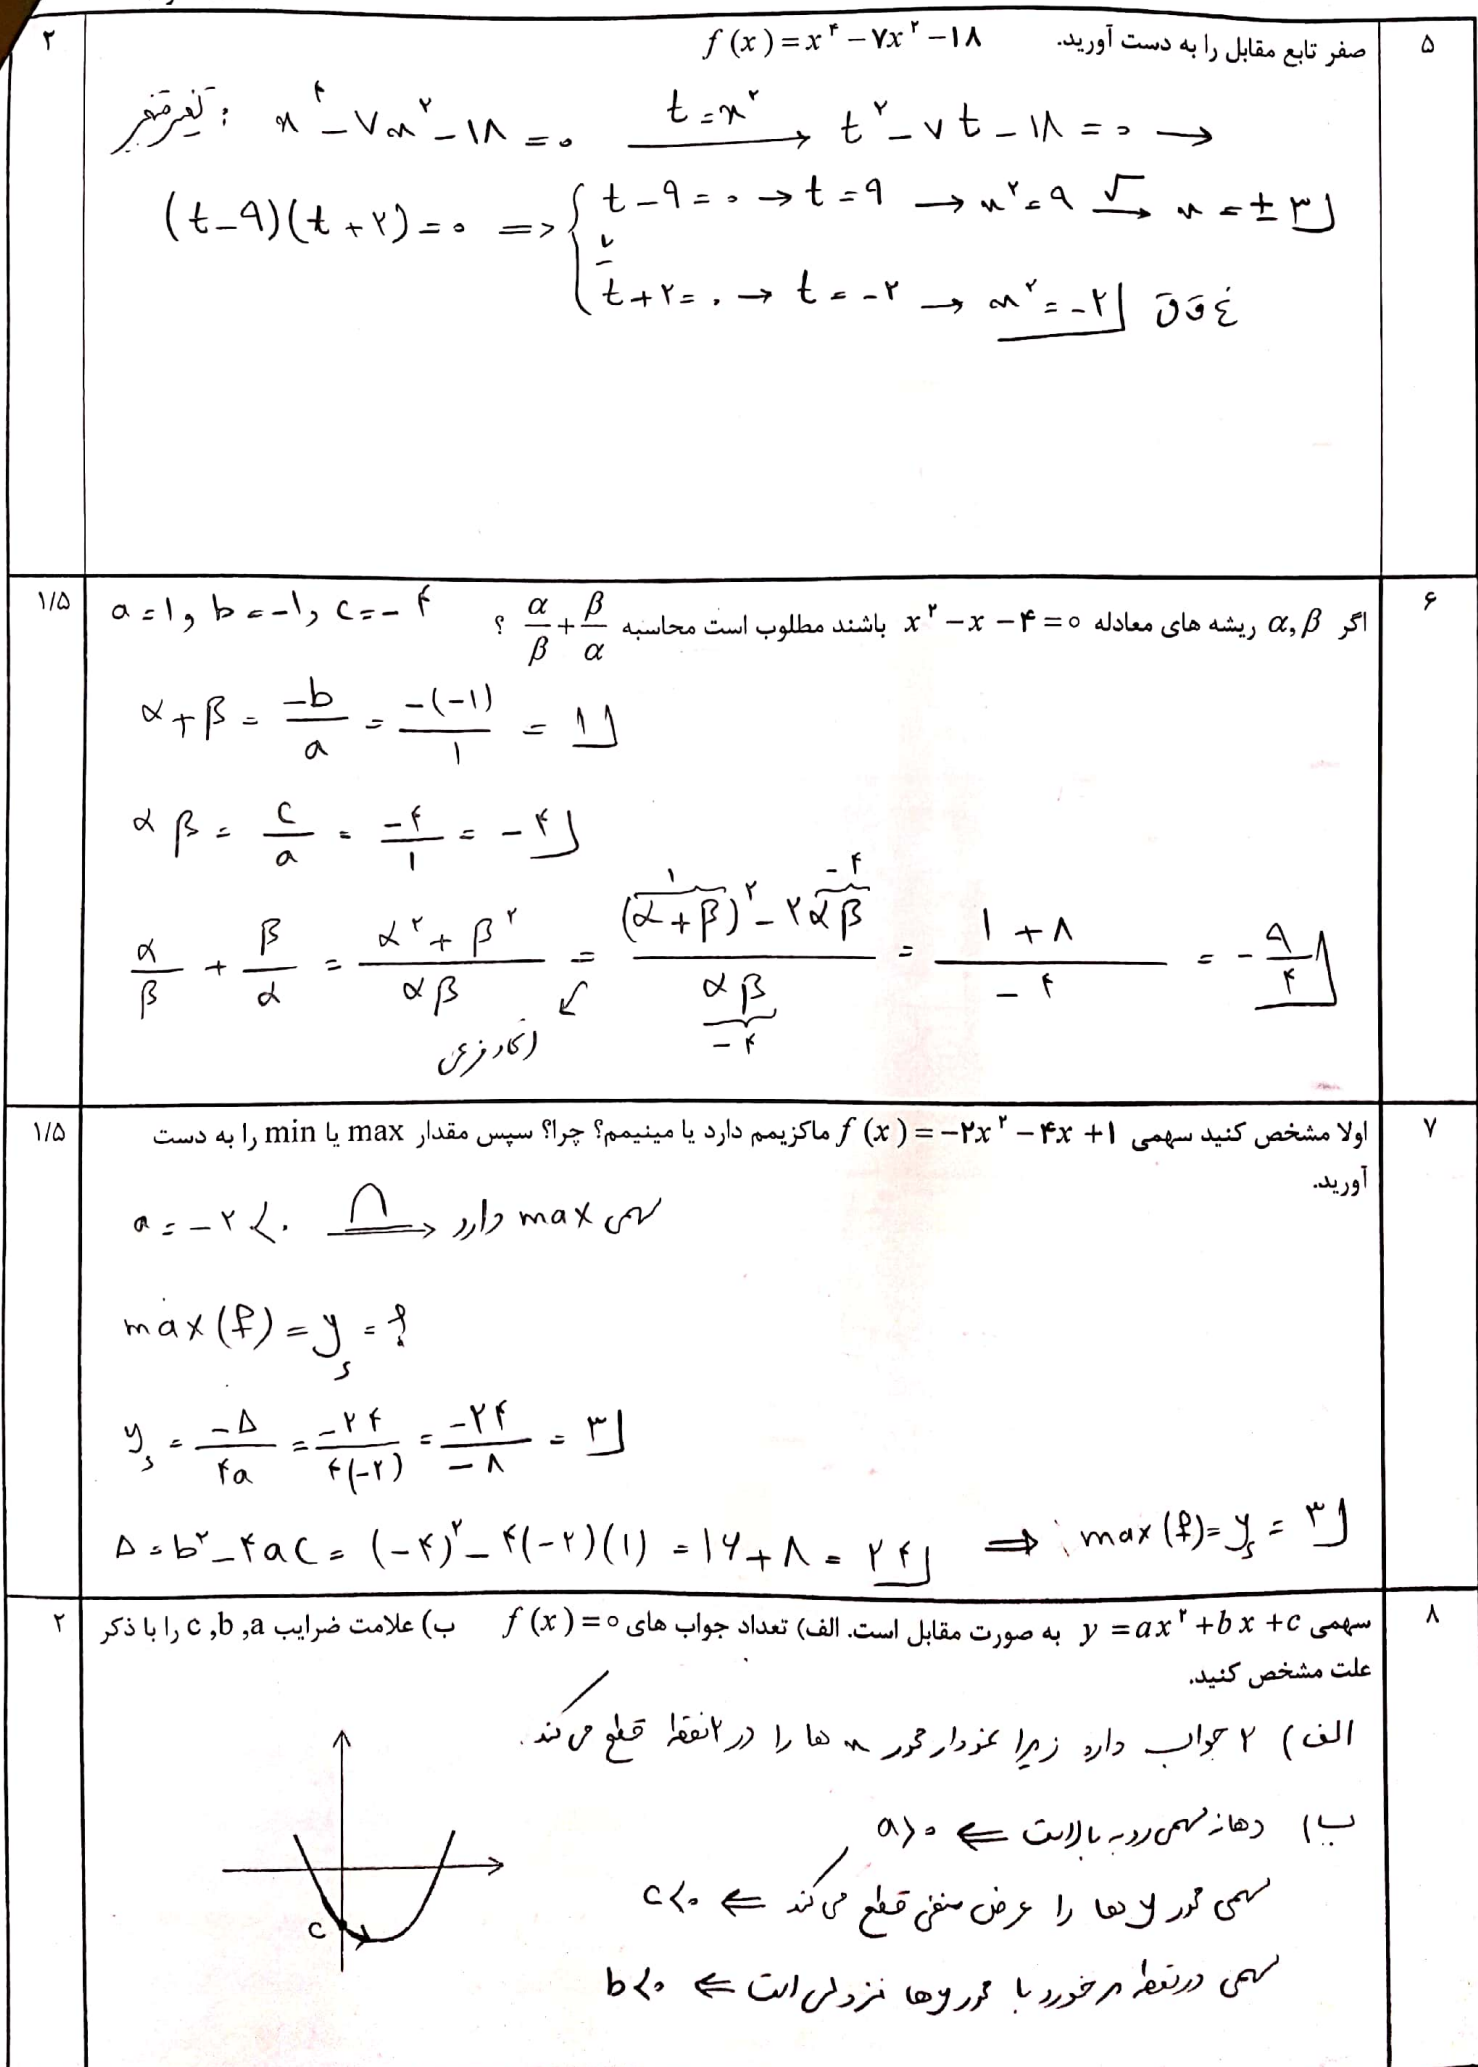 ۵ صفر تابع مقابل را به دست آورید. f(x)=x⁴−۷x²−۱۸ ۲
تغییر متغیر : x⁴−۷x²−۱۸=۰ t=x² → t²−۷t−۱۸=۰ →
(t−۹)(t+۲)=۰ => { t−۹=۰ → t=۹ → x²=۹ √→ x=±۳
یا
t+۲=۰ → t=−۲ → x²=−۲ غ ق ق
۶ اگر α,β ریشه های معادله x²−x−۴=۰ باشند مطلوب است محاسبه α/β + β/α ؟ ۱/۵
a=۱ و b=−۱ و c=−۴
α+β = −b/a = −(−۱)/۱ = ۱
αβ = c/a = −۴/۱ = −۴
α/β + β/α = (α²+β²)/αβ = ((α+β)²−۲αβ)/αβ = (۱+۸)/−۴ = −۹/۴
۱ −۴ −۴
۷ اولا مشخص کنید سهمی f(x)=−۲x²−۴x+۱ ماکزیمم دارد یا مینیمم؟ چرا؟ سپس مقدار max یا min را به دست ۱/۵
آورید.
a=−۲<۰ ∩ ⟹ سهمی max دارد
max(f)=yₛ=?
yₛ = −Δ/۴a = −۲۴/۴(−۲) = −۲۴/−۸ = ۳
Δ=b²−۴ac=(−۴)²−۴(−۲)(۱)=۱۶+۸=۲۴ ⟹ max(f)=yₛ=۳
۸ سهمی y=ax²+bx+c به صورت مقابل است. الف) تعداد جواب های f(x)=۰ ب) علامت ضرایب c ,b ,a را با ذکر ۲
علت مشخص کنید.
الف) ۲ جواب دارد زیرا نمودار محور x ها را در ۲ نقطه قطع می کند.
ب) دهانه سهمی رو به بالاست ⟸ a>۰
سهمی محور y ها را عرض منفی قطع می کند ⟸ c<۰
سهمی در نقطه برخورد با محور y ها نزولی است ⟸ b<۰
c